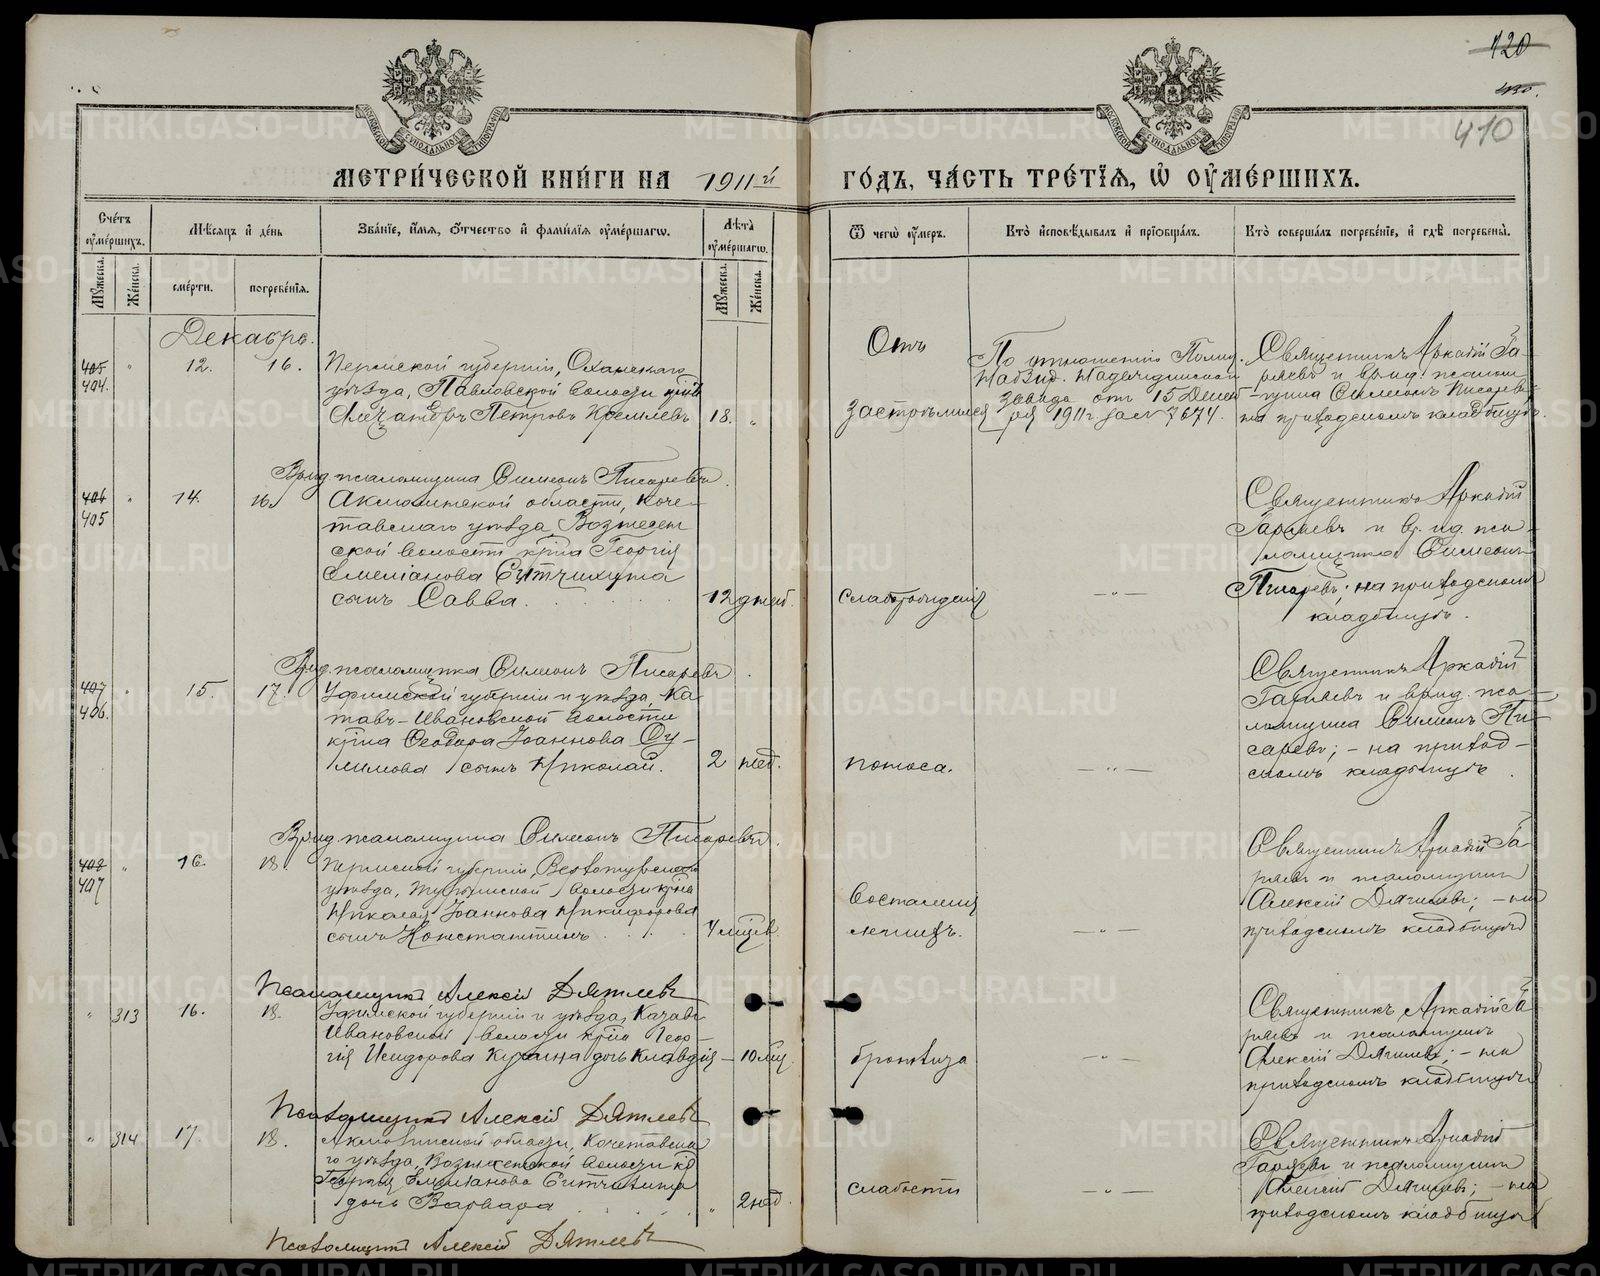 120
410
МЕТРИ́ЧЕСКОЙ КНИ́ГИ НА 1911й ГО́ДЪ, ЧА́СТЬ ТРЕ́ТІЯ, Ѿ ОУМЕ́РШИХЪ.
Сче́тъ оуме́ршихъ.
Мѣ́сяцъ и де́нь
Зва́ніе, и́мя, о́тчество и фами́лія оуме́ршагѡ.
Лѣ́та оуме́ршагѡ.
Ѿ чегѡ̀ оу́меръ.
Кто̀ исповѣ́дывалъ и пріѡбща́лъ.
Кто̀ соверша́лъ погребе́ніе, и гдѣ̀ погребены̀.
Му́жеска.
Же́нска.
сме́рти.
погребе́нія.
Му́жеска.
Же́нска.
Декабрь.
405
404.
"
12.
16.
Пермской губерніи, Оханскаго
уѣзда, Павловской волости кр‐нъ
Александръ Петровъ
18.
"
Отъ
застрѣлился
По отношенію Полиц.
Надзир. Надеждинскаго
завода отъ 15 Декаб‐
ря 1911 г. за № 7674.
Священникъ Аркадій Га‐
ряевъ и вр. ид. псалом‐
щика Симеонъ Писаревъ,
на приходскомъ кладбищѣ.
Вр. ид. псаломщика Симеонъ Писаревъ.
406
405
"
14.
16.
Акмолинской области, Коче‐
тавскаго уѣзда Вознесен
ской волости кр‐на Георгія
Емеліанова Ситчихина
сынъ Савва.
12 дней.
слаборожденія
— " —
Священникъ Аркадій
Гаряевъ и вр. ид. пса‐
ломщика Симеонъ
Писаревъ; на приходскомъ
кладбищѣ.
Вр. ид. псаломщика Симеонъ Писаревъ.
407
406.
"
15.
17.
Уфимской губерніи и уѣзда, Ка‐
тавъ‐Ивановской волости
кр‐на Ѳеодора Іоаннова Су‐
лимова сынъ Николай.
2 нед.
поноса.
— " —
Священникъ Аркадій
Гаряевъ и вр. ид. пса‐
ломщика Симеонъ Пи‐
саревъ; – на приход‐
скомъ кладбищѣ.
Вр. ид. псаломщика Симеонъ Писаревъ.
408
407
"
16.
18.
Пермской губерніи, Верхотурскаго
уѣзда, волости кр‐на
Николая Іоаннова Никифорова
сынъ Константинъ
4 мѣсяц.
воспаленія
легкихъ.
— " —
Священникъ Аркадій Га
ряевъ и псаломщикъ
Алексій Дягилевъ; – на
приходскомъ кладбищѣ
Псаломщикъ Алексій Дягилевъ
"
313
16.
18.
Уфимской губерніи и уѣзда, Катавъ‐
Ивановской волости кр‐на Геор‐
гія Исидорова дочь Клавдія
— 10 мѣс.
бронхита
— " —
Священникъ Аркадій Га
ряевъ и псаломщикъ
Алексій Дягилевъ; – на
приходскомъ кладбищѣ
Псаломщикъ Алексій Дягилевъ
"
314
17.
18.
Акмолинской области, Кочетавска
го уѣзда, Вознесенской волости кр
Георгія Емиліанова Ситчихина
дочь Варвара
"
2 нед.
слабости
— " —
Священникъ Аркадій
Гаряевъ и псаломщикъ
Алексій Дягилевъ; – на
приходскомъ кладбищѣ
Псаломщикъ Алексій Дягилевъ